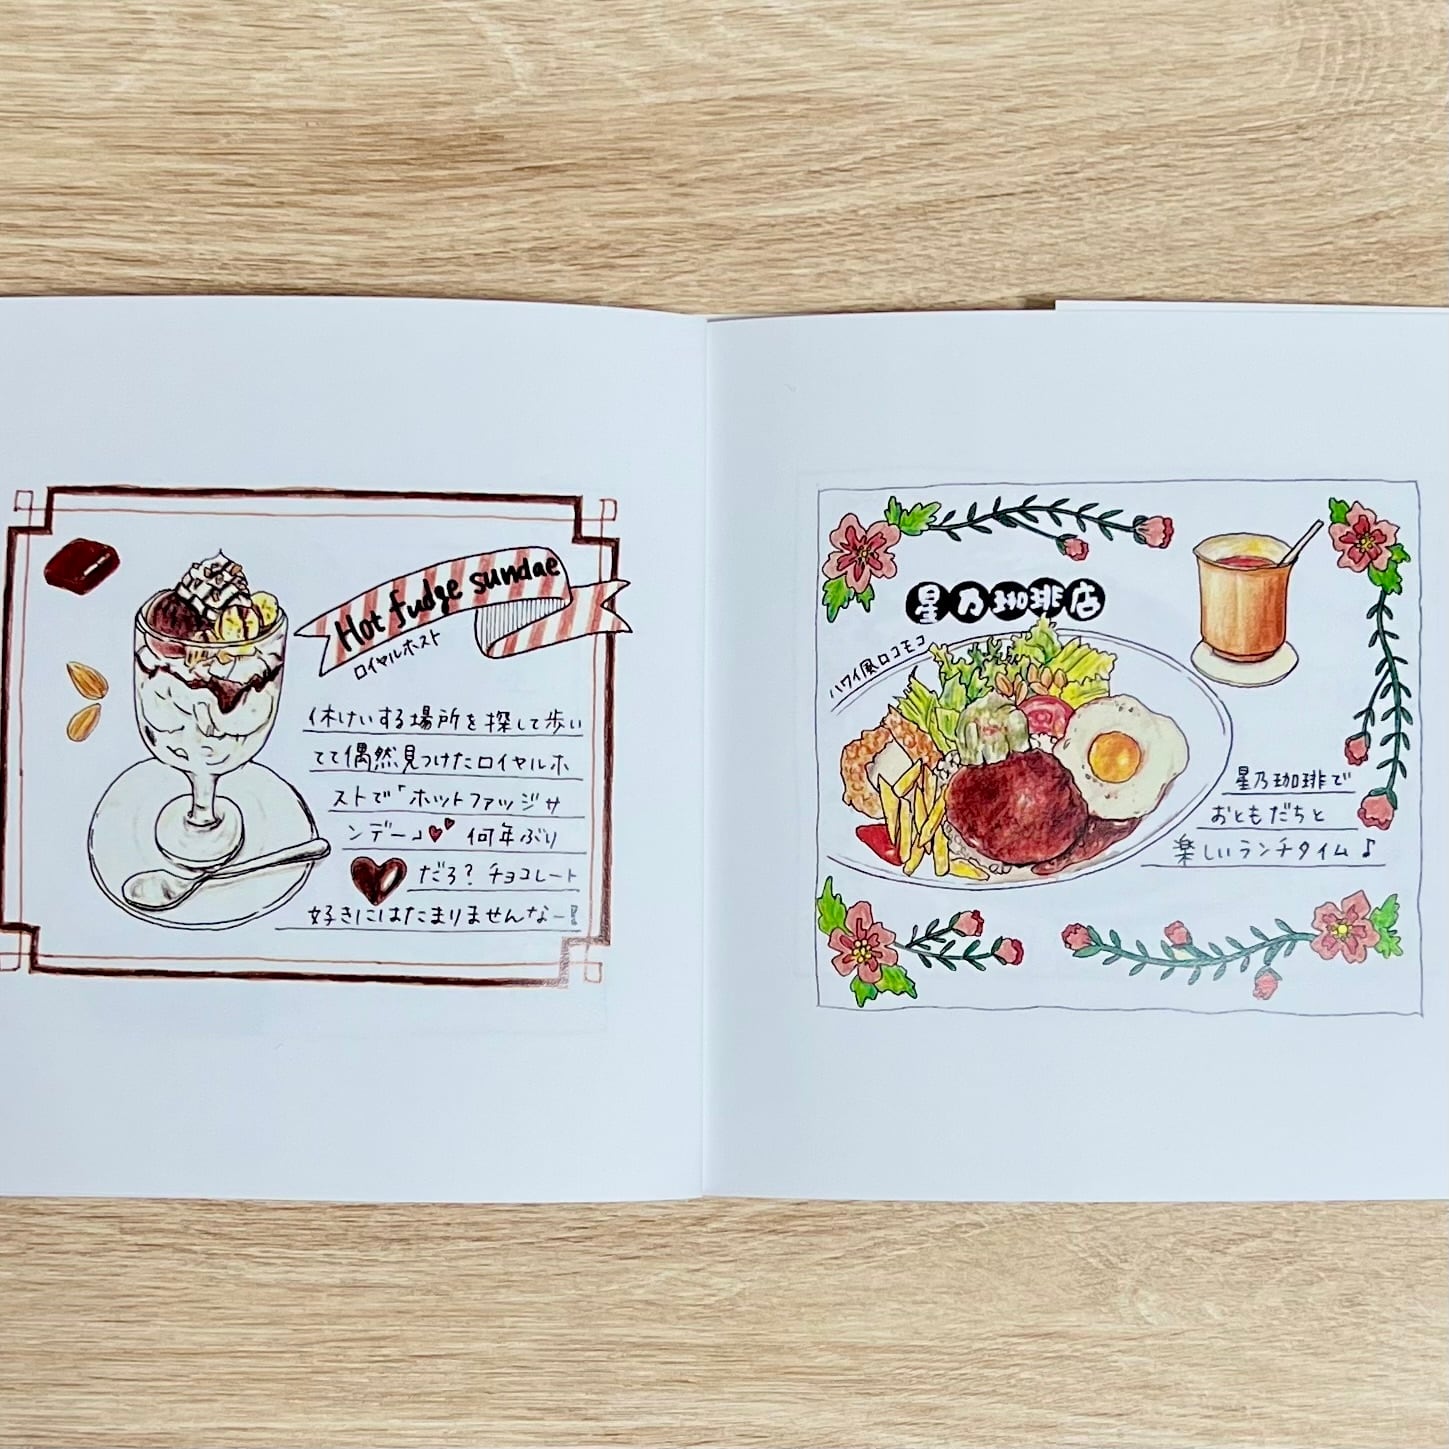 Hot fudge sundae
ロイヤルホスト
休けいする場所を探して歩い
てて偶然見つけたロイヤルホ
ストで「ホットファッジサ
ンデー」何年ぶり
だろ?チョコレート
好きにはたまりませんなー!
星乃珈琲店
ハワイ風ロコモコ
星乃珈琲で
おともだちと
楽しいランチタイム♪